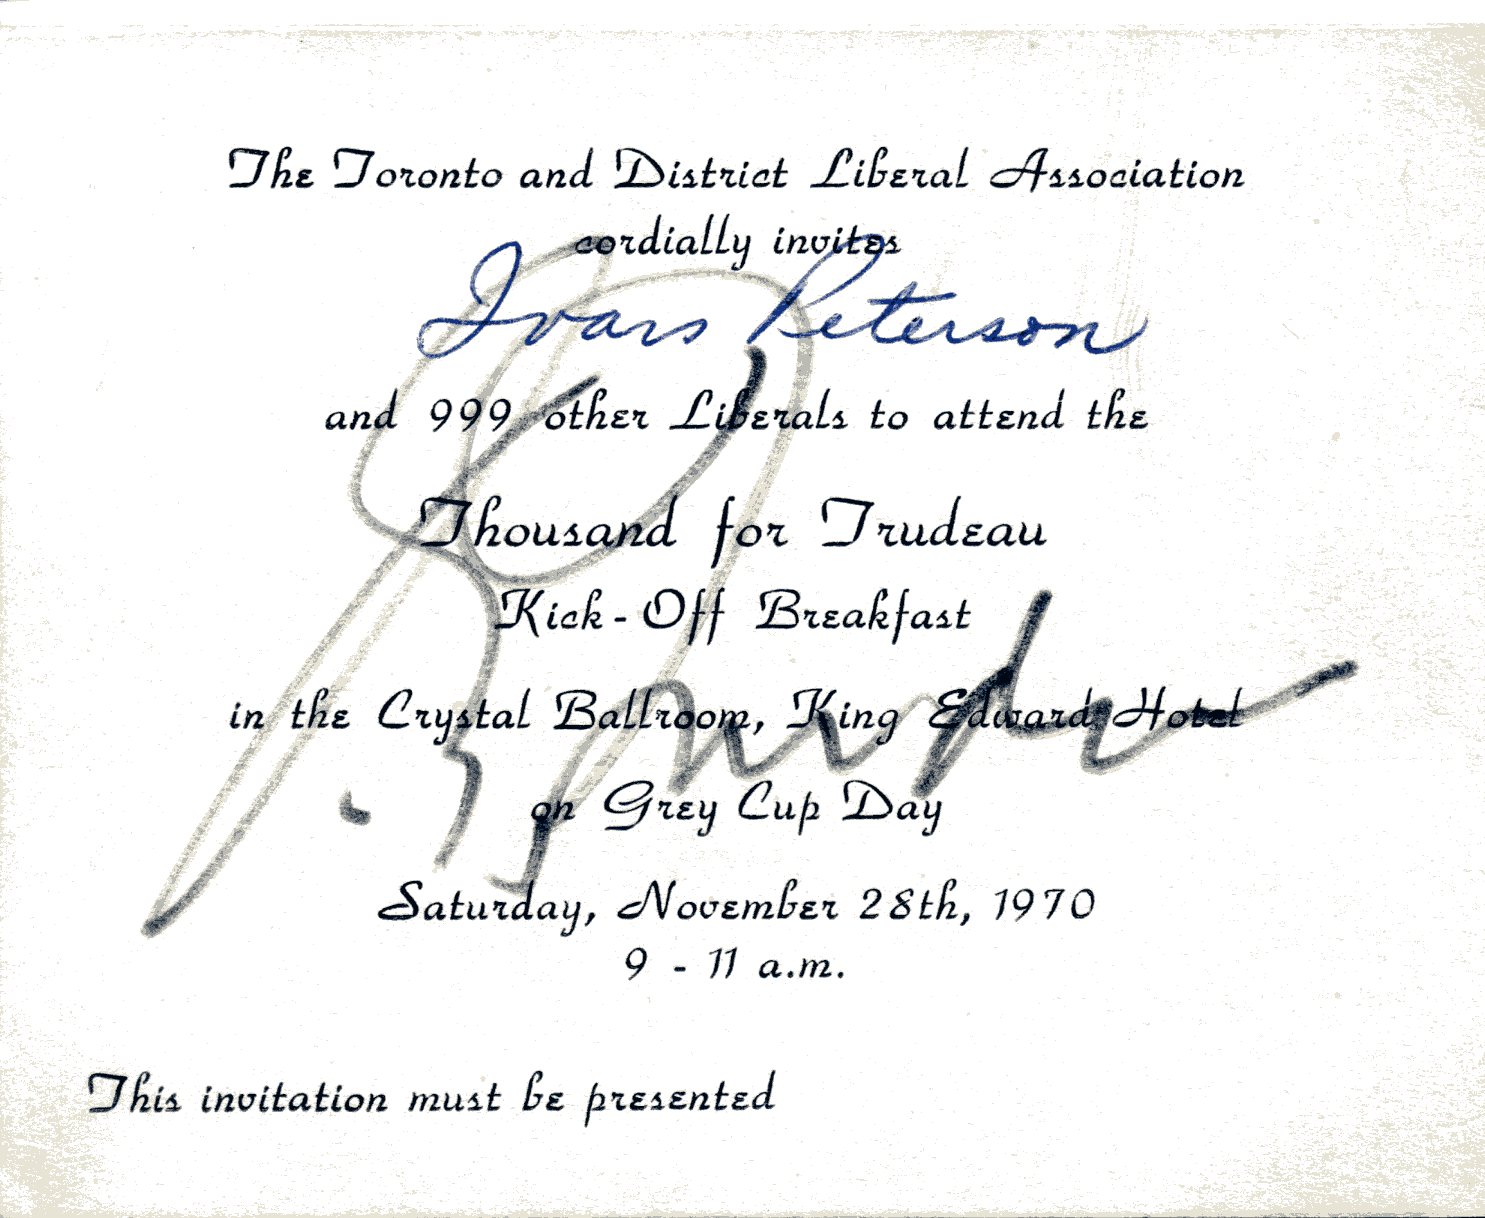 The Toronto and District Liberal Association
cordially invites
Ivars Peterson
and 999 other Liberals to attend the
Thousand for Trudeau
Kick-Off Breakfast
in the Crystal Ballroom, King Edward Hotel
on Grey Cup Day
Saturday, November 28th, 1970
9 - 11 a.m.
This invitation must be presented